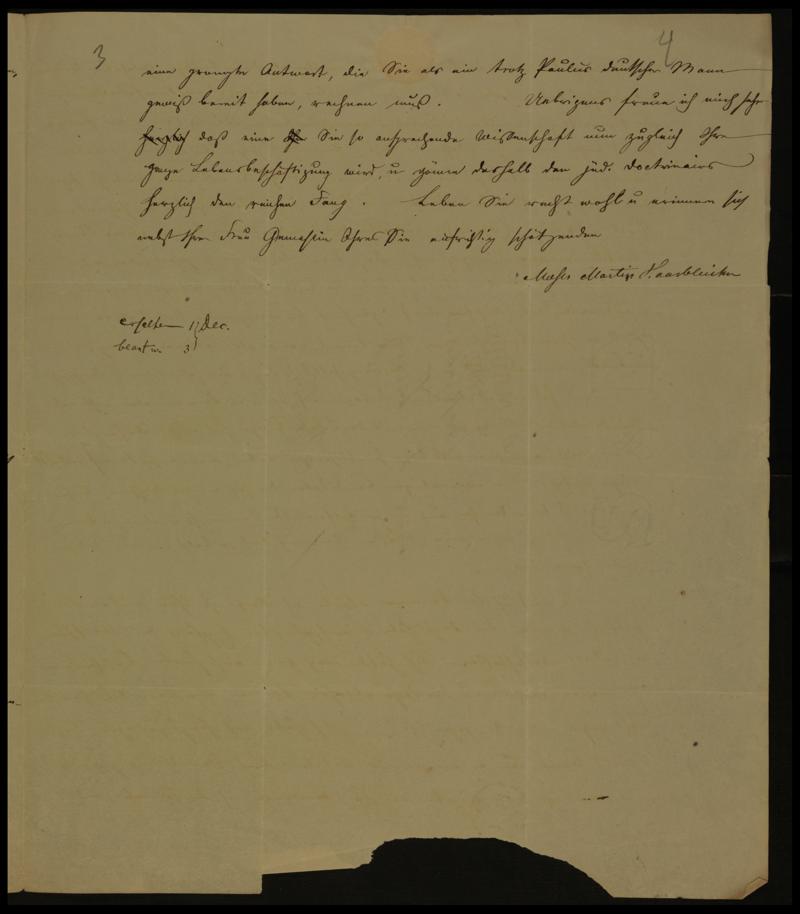 3 4
eine prompte Antwort, die Sie als ein trotz Paulus deutscher Mann
gewiß bereit haben, rechnen muß. Uebrigens freue ich mich sehr
herzlich daß eine Sie so ansprechende Wissenschaft nun zugleich Ihre
ganze Lebensbeschäftigung wird, u gönne deshalb den jüd. Doctrinairs
herzlich den reichen Fang. Leben Sie recht wohl u erinnern sich
nebst Ihrer Frau Gemahlin Ihres Sie aufrichtig schätzenden
Moses Martin Haarbleicher
erhalten 1 Dec.
beantw. 3